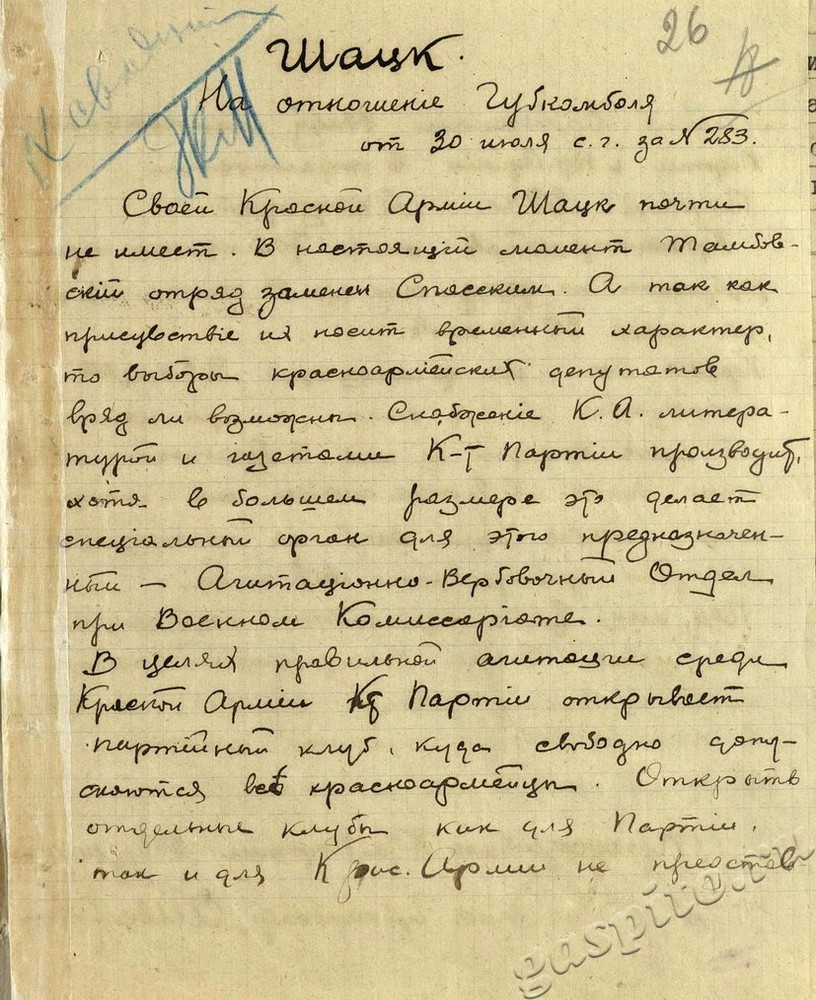 26
Шацк.
На отношеніе Губкомболя
от 30 июля с.г. за № 283.
Своей Красной Арміи Шацк почти
не имеет. В настоящій момент Тамбов-
скій отряд заменен Спасским. А так как
присувствіе их носит временный характер,
то выборы красноармейских депутатов
вряд ли возможны. Снабженіе К.А. литера-
турой и газетами К-т Партіи производит,
хотя в большем размере это делает
спеціальный орган для этого предназначен-
ный — Агитаціонно-Вербовочный Отдел
при Военном Комиссаріате.
В целях правильной агитации среди
Красной Арміи Кт Партіи открывает
партійный клуб, куда свободно допу-
скаются всѣ красноармейцы. Открыть
отдельные клубы как для Партіи,
так и для Крас. Армии не предстов-
gaspito.ru